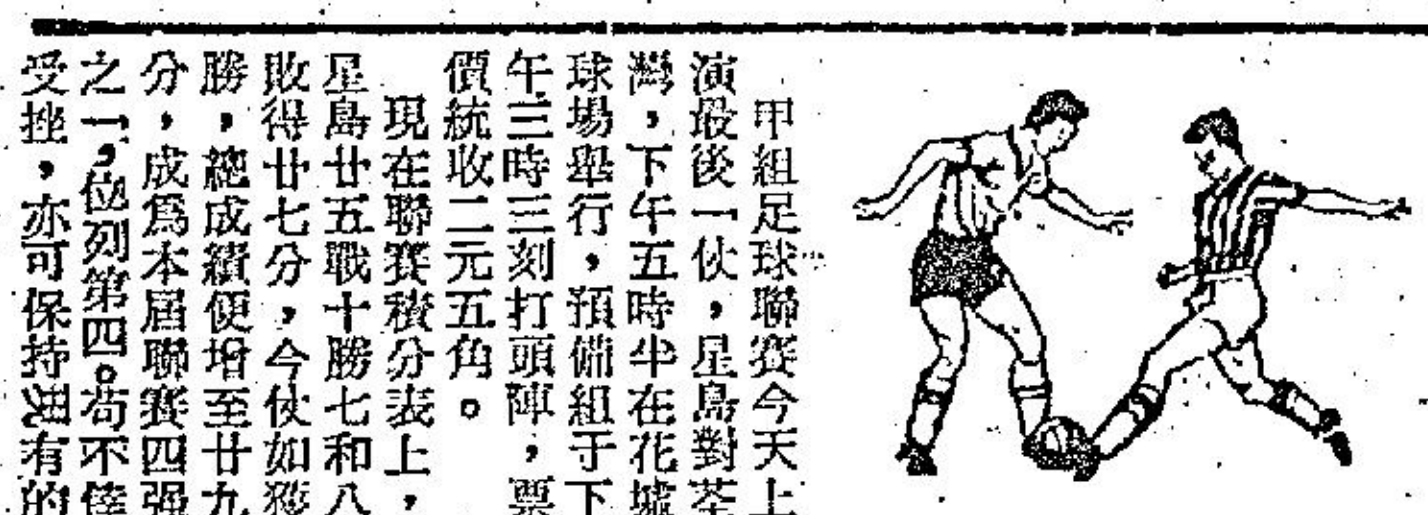 甲組足球聯賽今天上
演最後一伙,星島對荃
灣,下午五時半在花墟
球塲舉行,預備組于下
午三時三刻打頭陣,票
價統收二元五角。
現在聯賽積分表上,
星島廿五戰十勝七和八
敗得廿七分,今仗如獲
勝,總成績便增至廿九
分,成爲本屆聯賽四强
之一,位列第四。苟不倖
受挫,亦可保持 有的